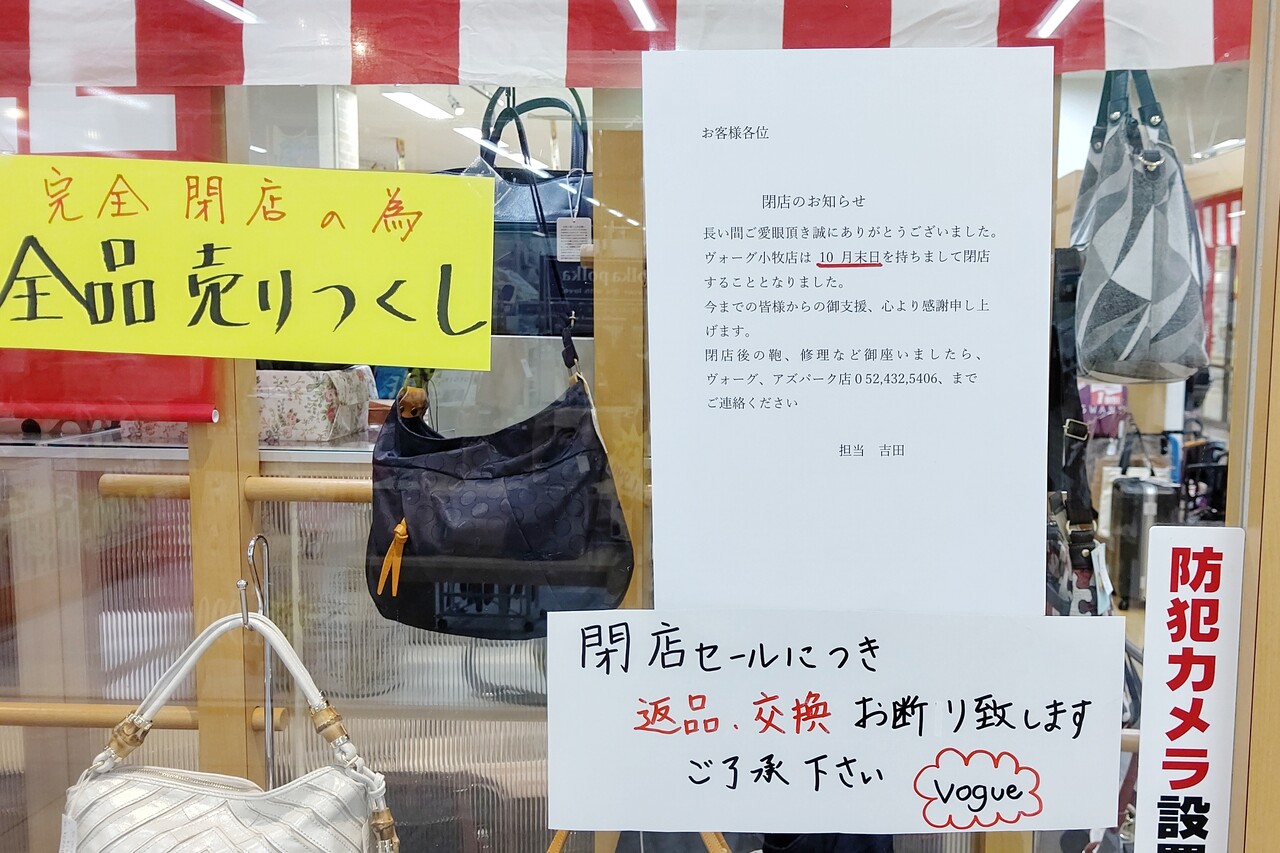 完全閉店の為
全品売りつくし
お客様各位
閉店のお知らせ
長い間ご愛眼頂き誠にありがとうございました。
ヴォーグ小牧店は 10 月末日を持ちまして閉店
することとなりました。
今までの皆様からの御支援、心より感謝申し上
げます。
閉店後の鞄、修理など御座いましたら、
ヴォーグ、アズパーク店０52,432,5406、まで
ご連絡ください
担当　吉田
閉店セールにつき
返品、交換お断り致します
ご了承下さい
Vogue
防犯カメラ設